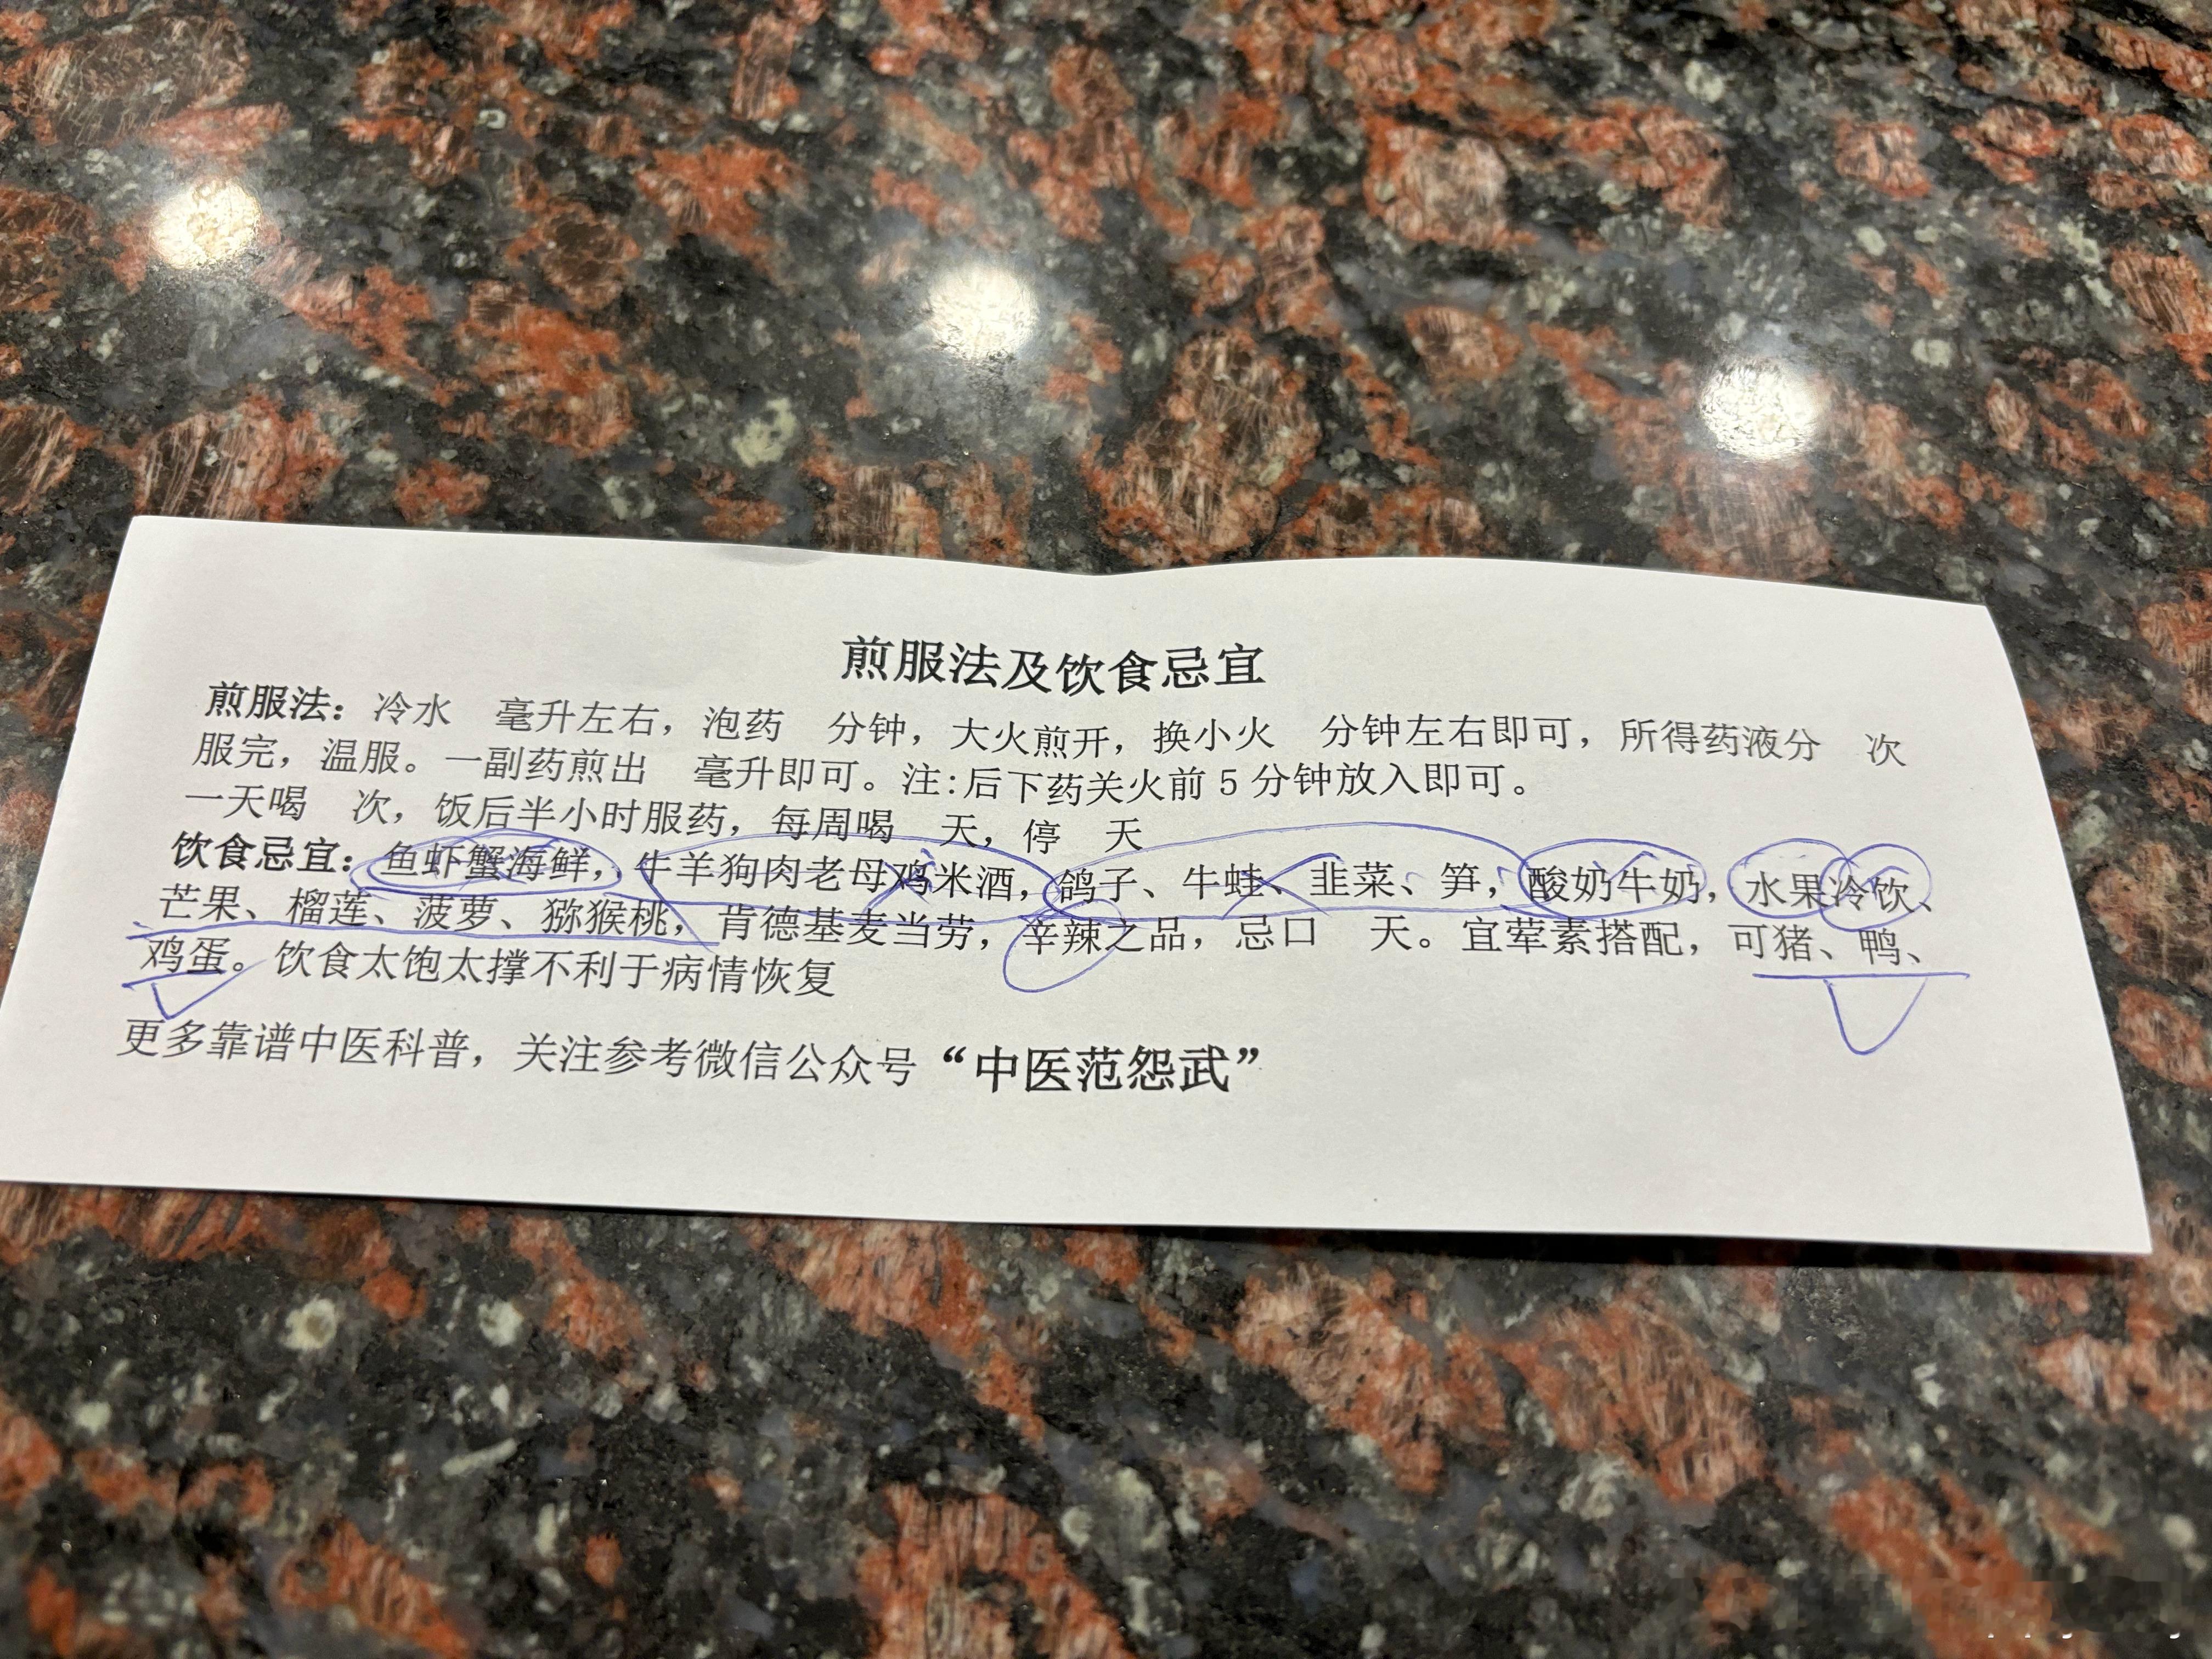 煎服法及饮食忌宜
煎服法：冷水 毫升左右，泡药 分钟，大火煎开，换小火 分钟左右即可，所得药液分 次
服完，温服。一副药煎出 毫升即可。注：后下药关火前 5 分钟放入即可。
一天喝 次，饭后半小时服药，每周喝 天，停 天
饮食忌宜：鱼虾蟹海鲜，牛羊狗肉老母鸡米酒，鸽子、牛蛙、韭菜、笋，酸奶牛奶，水果冷饮、
芒果、榴莲、菠萝、猕猴桃，肯德基麦当劳，辛辣之品，忌口 天。宜荤素搭配，可猪、鸭、
鸡蛋。饮食太饱太撑不利于病情恢复
更多靠谱中医科普，关注参考微信公众号“中医范怨武”